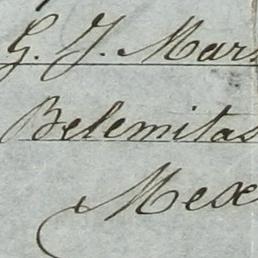 G. J. Mars
Belemitas
Mex